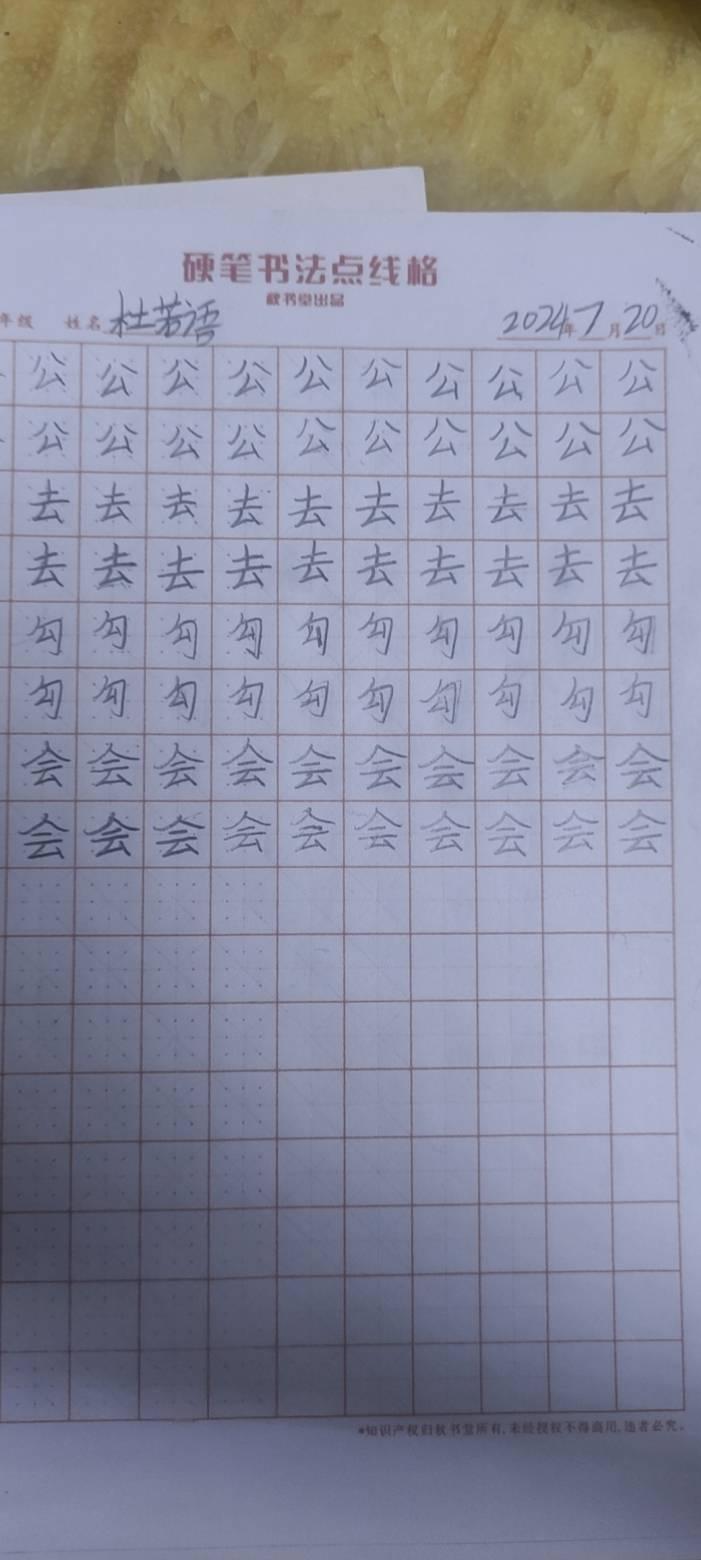 硬笔书法点线格
秋书堂出品
年级 姓名 杜若语 2024年7月20日
公公公公公公公公公公
公公公公公公公公公公
去去去去去去去去去去
去去去去去去去去去去
勾勾勾勾勾勾勾勾勾勾
勾勾勾勾勾勾勾勾勾勾
会会会会会会会会会会
会会会会会会会会会会
*知识产权归秋书堂所有,未经授权不得商用,违者必究。